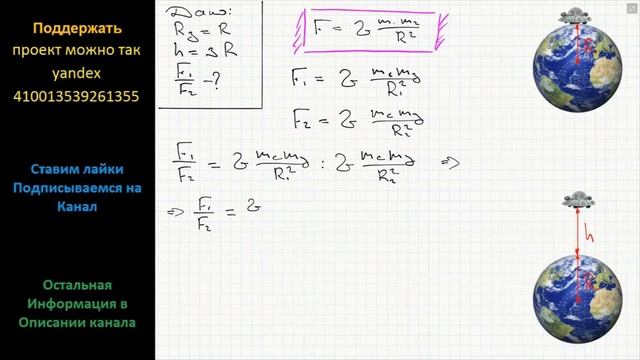 Поддержать
проект можно так
yandex
410013539261355
Ставим лайки
Подписываемся на
Канал
Остальная
Информация в
Описании канала
Дано:
Rз = R
h = 3R
F₁/F₂ - ?
F = G m₁m₂/R²
F₁ = G mcmз/R₁²
F₂ = G mcmз/R₂²
F₁/F₂ = G mcmз/R₁² : G mcmз/R₂² =>
=> F₁/F₂ = G
R
h
R